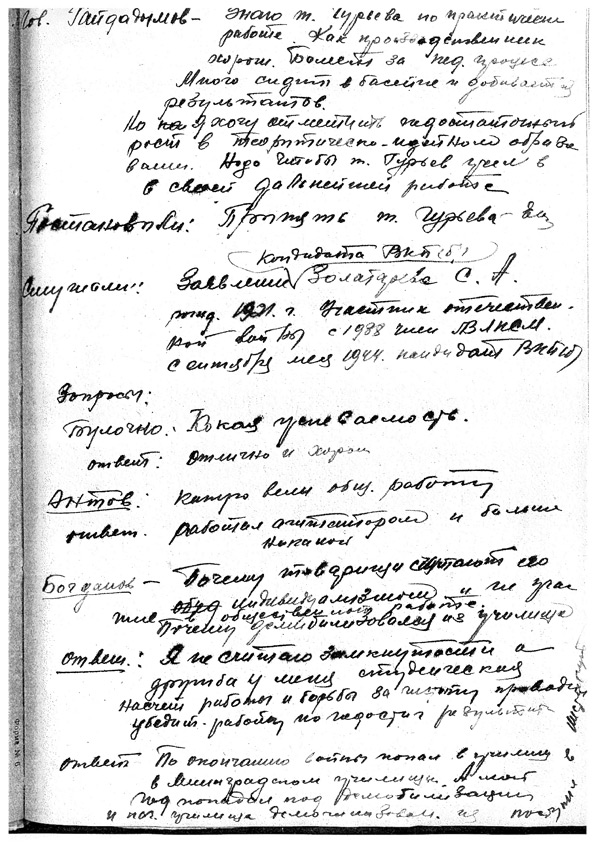 Тов. Гайдадымов – Знаю т. Гурьева по практическ
работе. Как производственник
хорош. Болеет за пед. процесс.
Много сидит в басейне и добивается
результатов.
Но я хочу отметить недостаточный
рост в теоритическо-идейном образо
вании. Надо чтобы т. Гурьев учел в
в своей дальнейшей работе
Постановили: Принять т. Гурьева
кондидата ВКП(б)
Слушали: Заявление С. А.
рожд. 1921. г. Участник отечествен-
ной войны с 1938 член ВЛКСМ.
с сентября мес 1944. кандидат ВКП(б)
Вопросы:
Булочко: Кокая успеваемость.
ответ: отлично и хорош
Антов: какую вели общ. работу
ответ. работал агитатором и больше
никакой
Богданов – Почему товарищи считают его
индивидуалистом и не учас
тие в общественной работе
Почему демобилизовался из училища
Ответ.: Я не считаю замкнутости а
дружба у меня студенческая
насчет работы и борьбы за чистоту проводил
убедит. работу но недостиг результата
ответ По окончанию войны попал в училище
в Ленинградском училище. А мой
год попадал под демобилизацию
и нач. училища демобилизовал. из